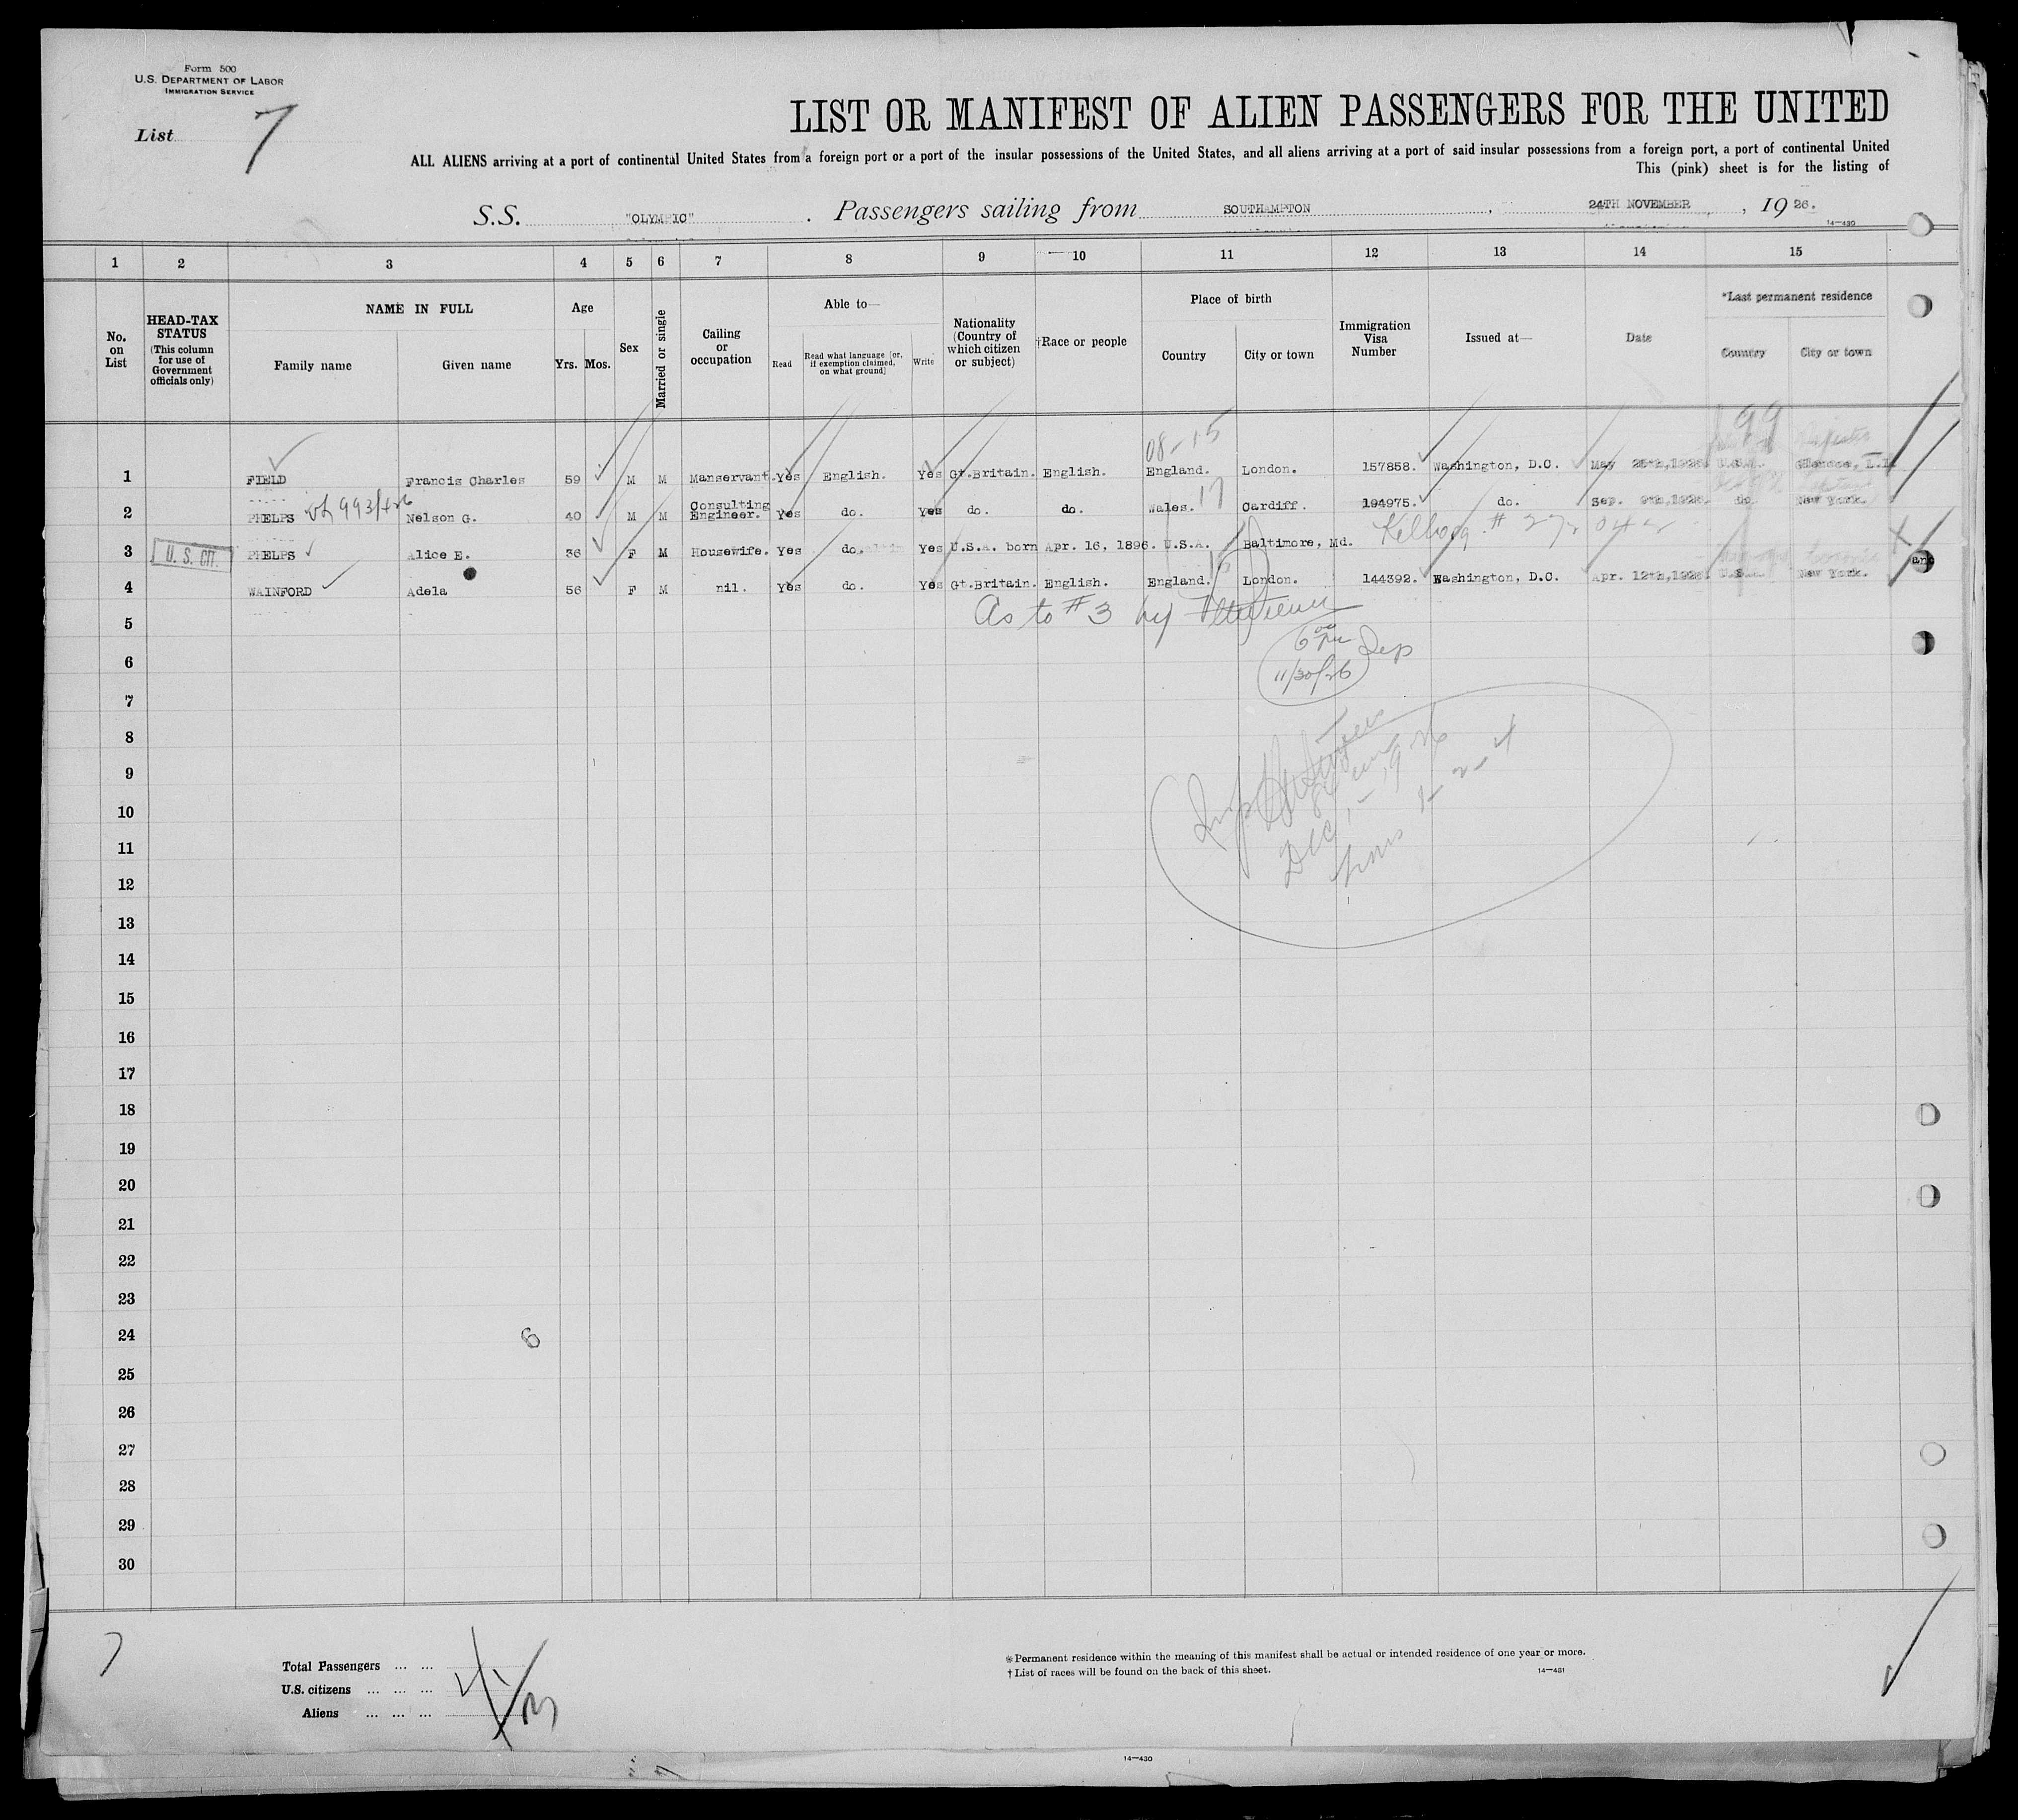 Form 500
U.S. DEPARTMENT OF LABOR
IMMIGRATION SERVICE
List 7
LIST OR MANIFEST OF ALIEN PASSENGERS FOR THE UNITED
ALL ALIENS arriving at a port of continental United States from a foreign port or a port of the insular possessions of the United States, and all aliens arriving at a port of said insular possessions from a foreign port, a port of continental United
This (pink) sheet is for the listing of
S.S. "OLYMPIC" . Passengers sailing from SOUTHAMPTON , 24TH NOVEMBER , 19 26.
14—430
1 2 3 4 5 6 7 8 9 10 11 12 13 14 15
No. on List
HEAD-TAX STATUS (This column for use of Government officials only)
NAME IN FULL
Family name Given name
Age
Yrs. Mos.
Sex
Married or single
Calling or occupation
Able to—
Read Read what language [or, if exemption claimed, on what ground] Write
Nationality (Country of which citizen or subject)
†Race or people
Place of birth
Country City or town
Immigration Visa Number
Issued at—
Date
*Last permanent residence
Country City or town
99
08-15
1 FIELD Francis Charles 59 M M Manservant. Yes English. Yes Gt.Britain. English. England. London. 157858. Washington, D.C. May 25th, U.S.A. Glencoe, L.I.
2 PHELPS 993/426 Nelson G. 40 M M Consulting Engineer. Yes do. Yes do. do. Wales. 17 Cardiff. 194975. do. Sep. 9th, do. New York.
Kellogg #
3 U.S. CIT. PHELPS Alice E. 36 F M Housewife. Yes do. Yes U.S.A. born Apr. 16, 1896. U.S.A. Baltimore, Md.
and
4 WAINFORD Adela 56 F M nil. Yes do. Yes Gt.Britain. English. England. 15 London. 144392. Washington, D.C. Apr. 12th, U.S. New York.
5 As to #3 by
6 6 00 PM Dep
11/30/26
7
8
9
10 Dec 1 - 1926
11
12
13
14
15
16
17
18
19
20
21
22
23
24 6
25
26
27
28
29
30
7
Total Passengers ... ...
U.S. citizens ... ... ...
Aliens ... ... ... 3
*Permanent residence within the meaning of this manifest shall be actual or intended residence of one year or more.
†List of races will be found on the back of this sheet.
14—431
14—430